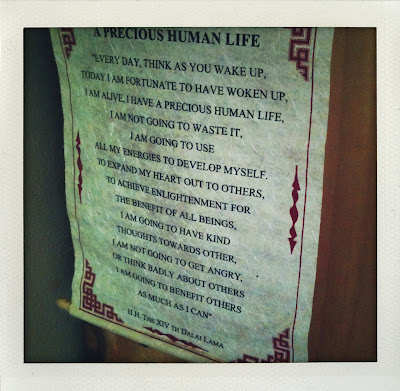 A PRECIOUS HUMAN LIFE
"EVERY DAY, THINK AS YOU WAKE UP,
TODAY I AM FORTUNATE TO HAVE WOKEN UP,
I AM ALIVE, I HAVE A PRECIOUS HUMAN LIFE,
I AM NOT GOING TO WASTE IT,
I AM GOING TO USE
ALL MY ENERGIES TO DEVELOP MYSELF.
TO EXPAND MY HEART OUT TO OTHERS,
TO ACHIEVE ENLIGHTENMENT FOR
THE BENEFIT OF ALL BEINGS,
I AM GOING TO HAVE KIND
THOUGHTS TOWARDS OTHER,
I AM NOT GOING TO GET ANGRY,
OR THINK BADLY ABOUT OTHERS
I AM GOING TO BENEFIT OTHERS
AS MUCH AS I CAN"
H.H. THE XIV TH DALAI LAMA